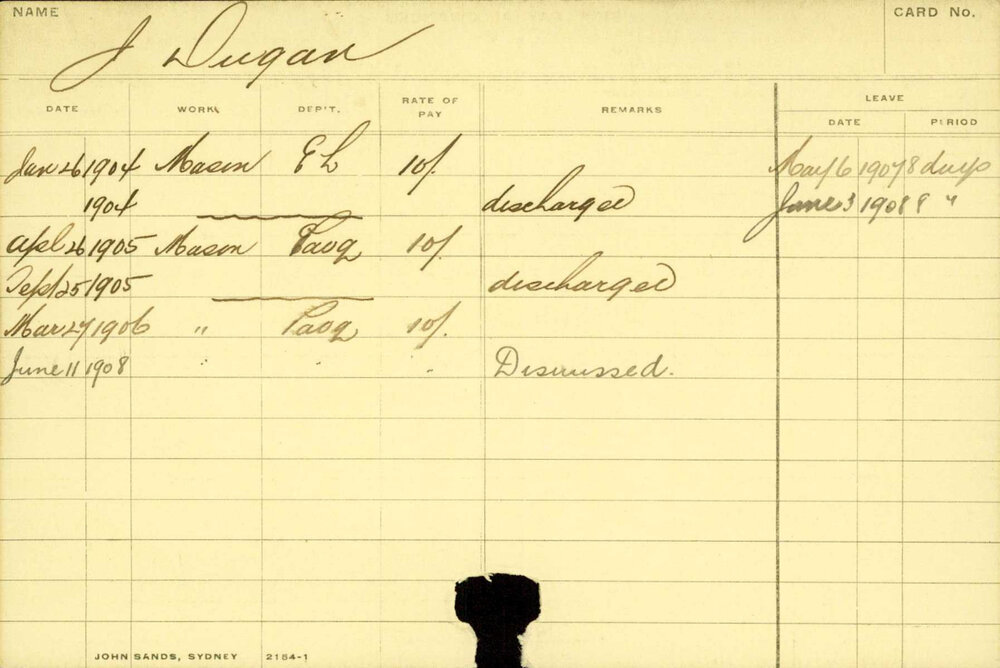 NAME
CARD No.
J Dugan
DATE WORK DEP'T. RATE OF PAY REMARKS LEAVE
DATE PERIOD
Jan 26 1904 Mason E L 10/. May 6 1907 8 days
1904 discharged June 3 1908 8 "
Apl 26 1905 Mason Pavg 10/.
Sept 25 1905 discharged
Mar 27 1906 " Pavg 10/.
June 11 1908 " " " Dismissed.
JOHN SANDS, SYDNEY 2154-1